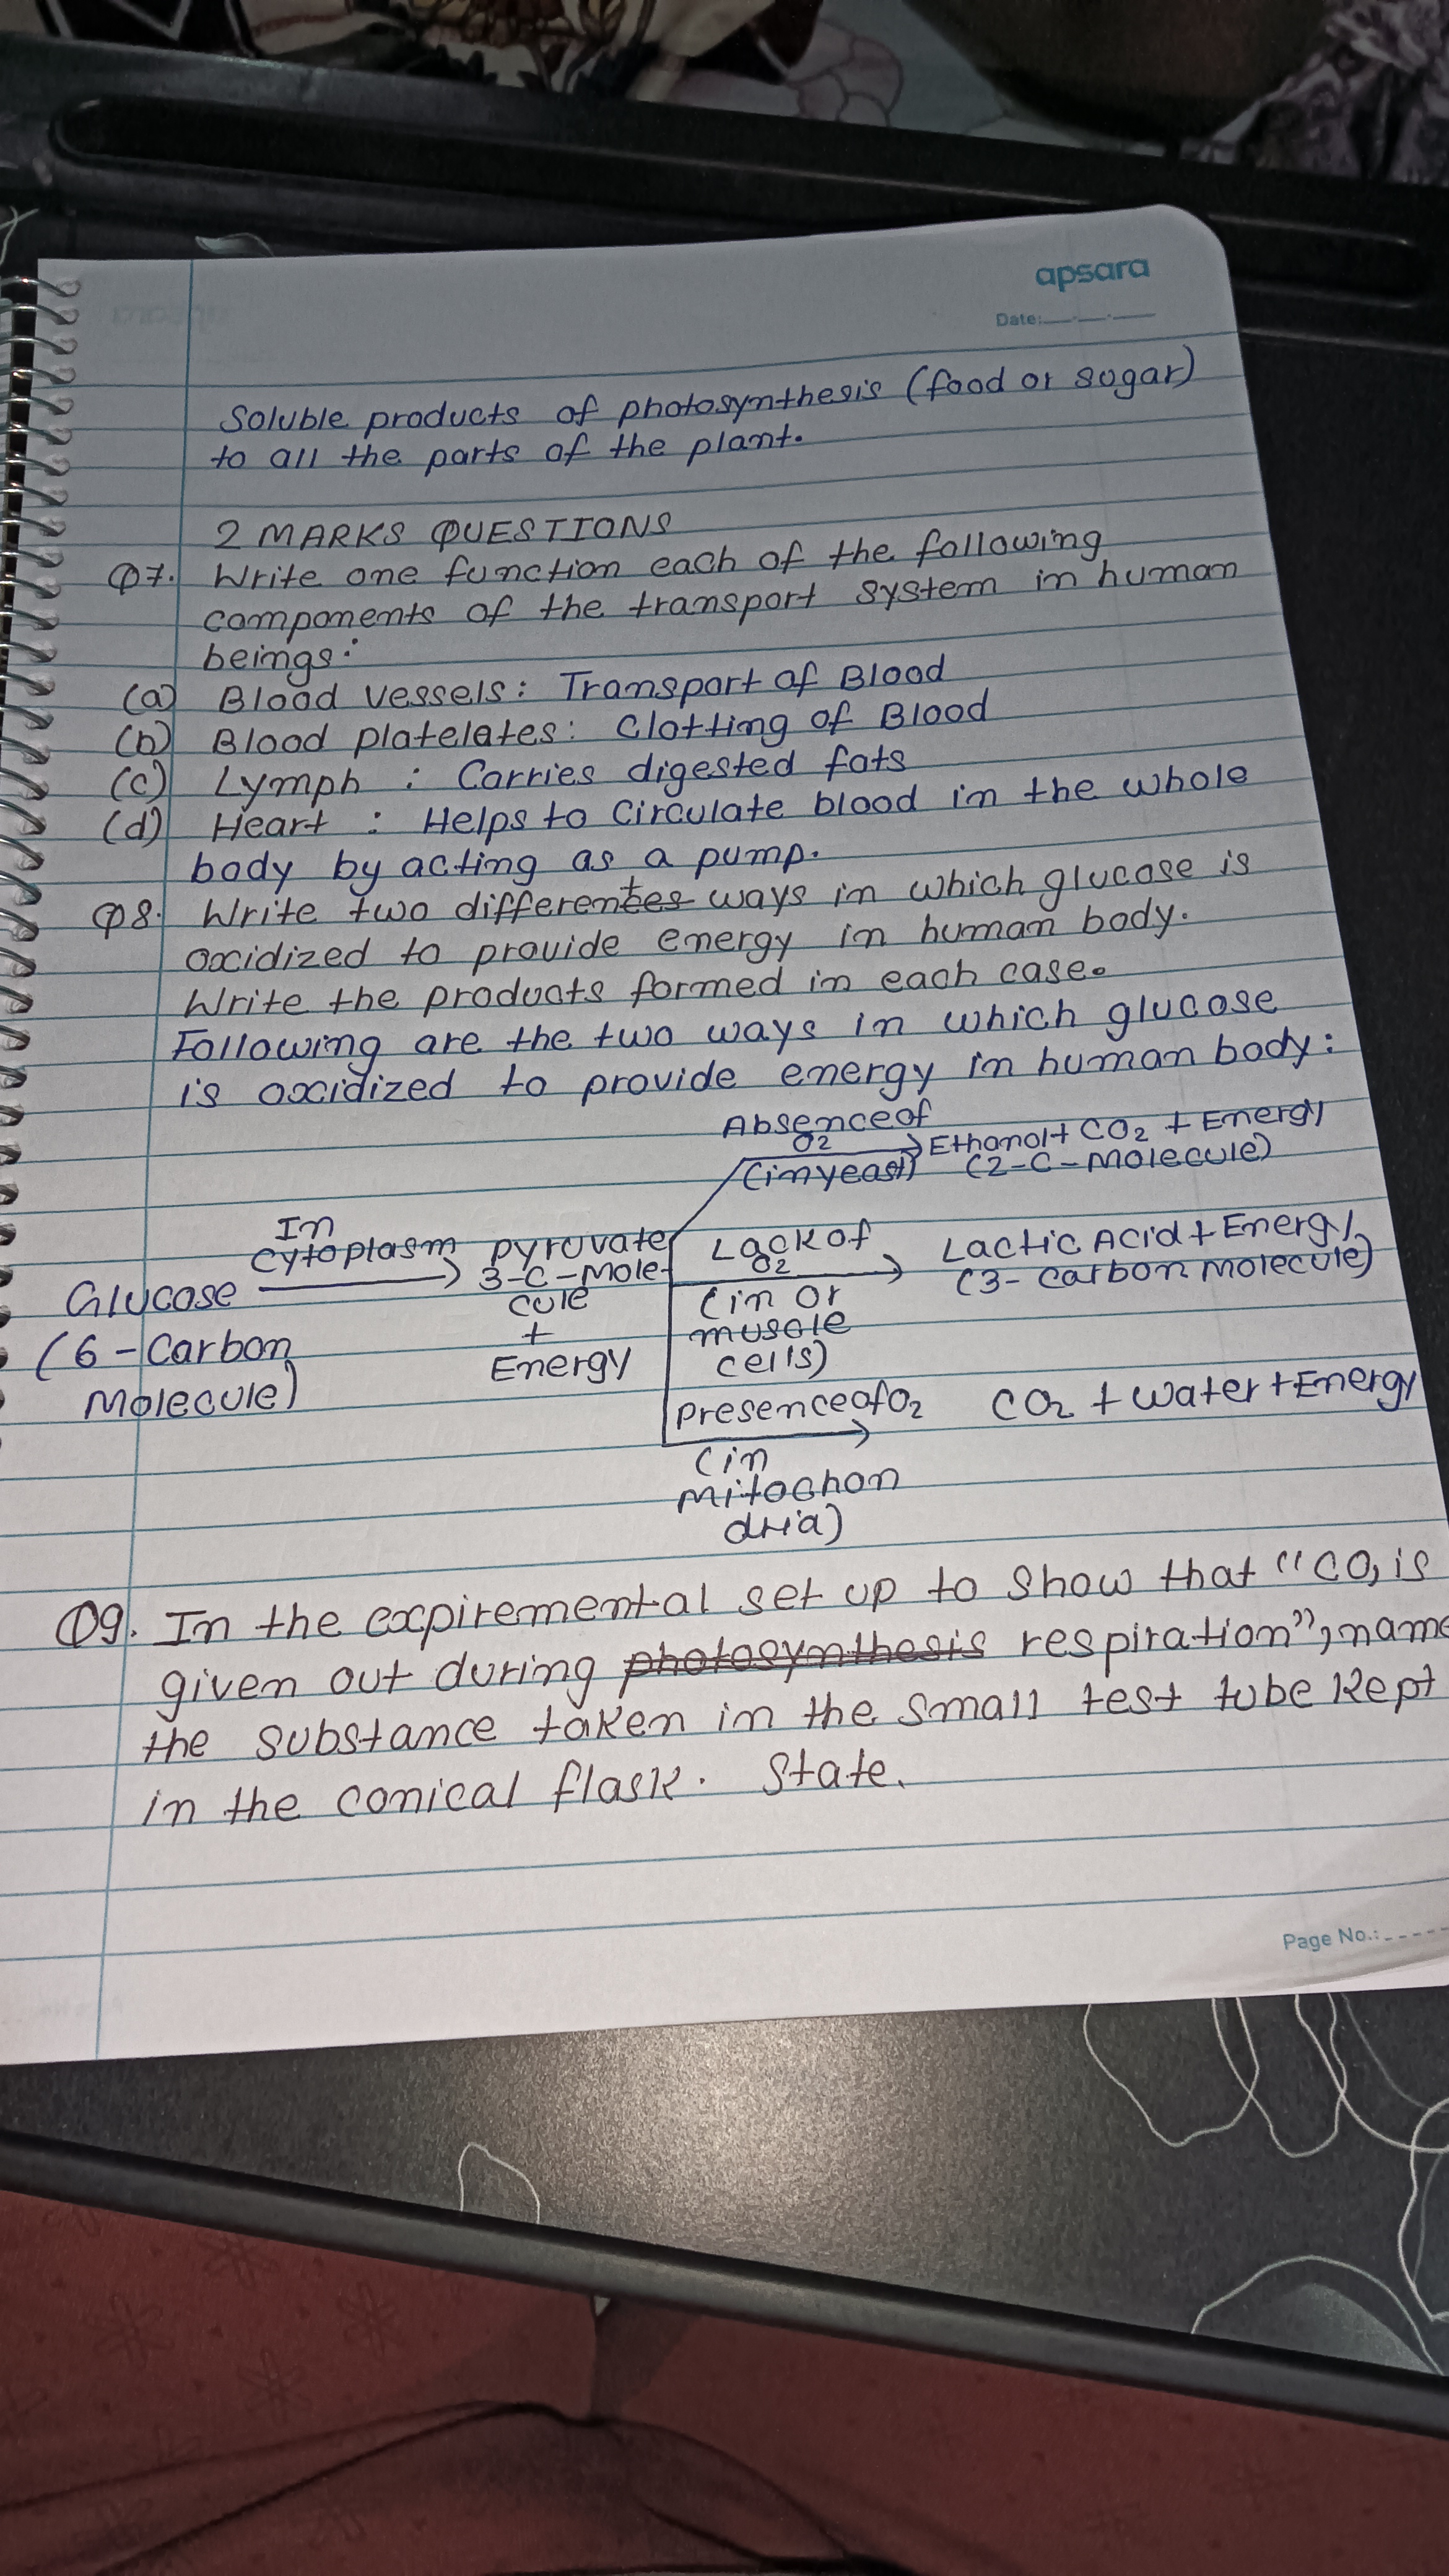 apsara
Date:
Soluble products of photosynthesis (food or sugar)
to all the parts of the plant.
2 MARKS QUESTIONS
Q7. Write one function each of the following
components of the transport system in human
beings:
(a) Blood vessels: Transport of Blood
(b) Blood platelates: Clotting of Blood
(c) Lymph : Carries digested fats
(d) Heart : Helps to circulate blood in the whole
body by acting as a pump.
Q8. Write two different ways in which glucose is
oxidized to provide energy in human body.
Write the products formed in each case.
Following are the two ways in which glucose
is oxidized to provide energy in human body:
Absence of
O2
Ethanol + CO2 + Energy
(in yeast) (2-C-Molecule)
In
cytoplasm
Glucose
(6-Carbon
Molecule)
pyruvate
3-C-Mole-
cule
+
Energy
Lack of
O2
(in or
muscle
cells)
Lactic Acid + Energy
(3-Carbon Molecule)
Presence of O2 CO2 + Water + Energy
(in
Mitochon
dria)
Q9. In the expiremental set up to show that "CO2 is
given out during photosynthesis respiration", name
the substance taken in the small test tube kept
in the conical flask. State.
Page No.: